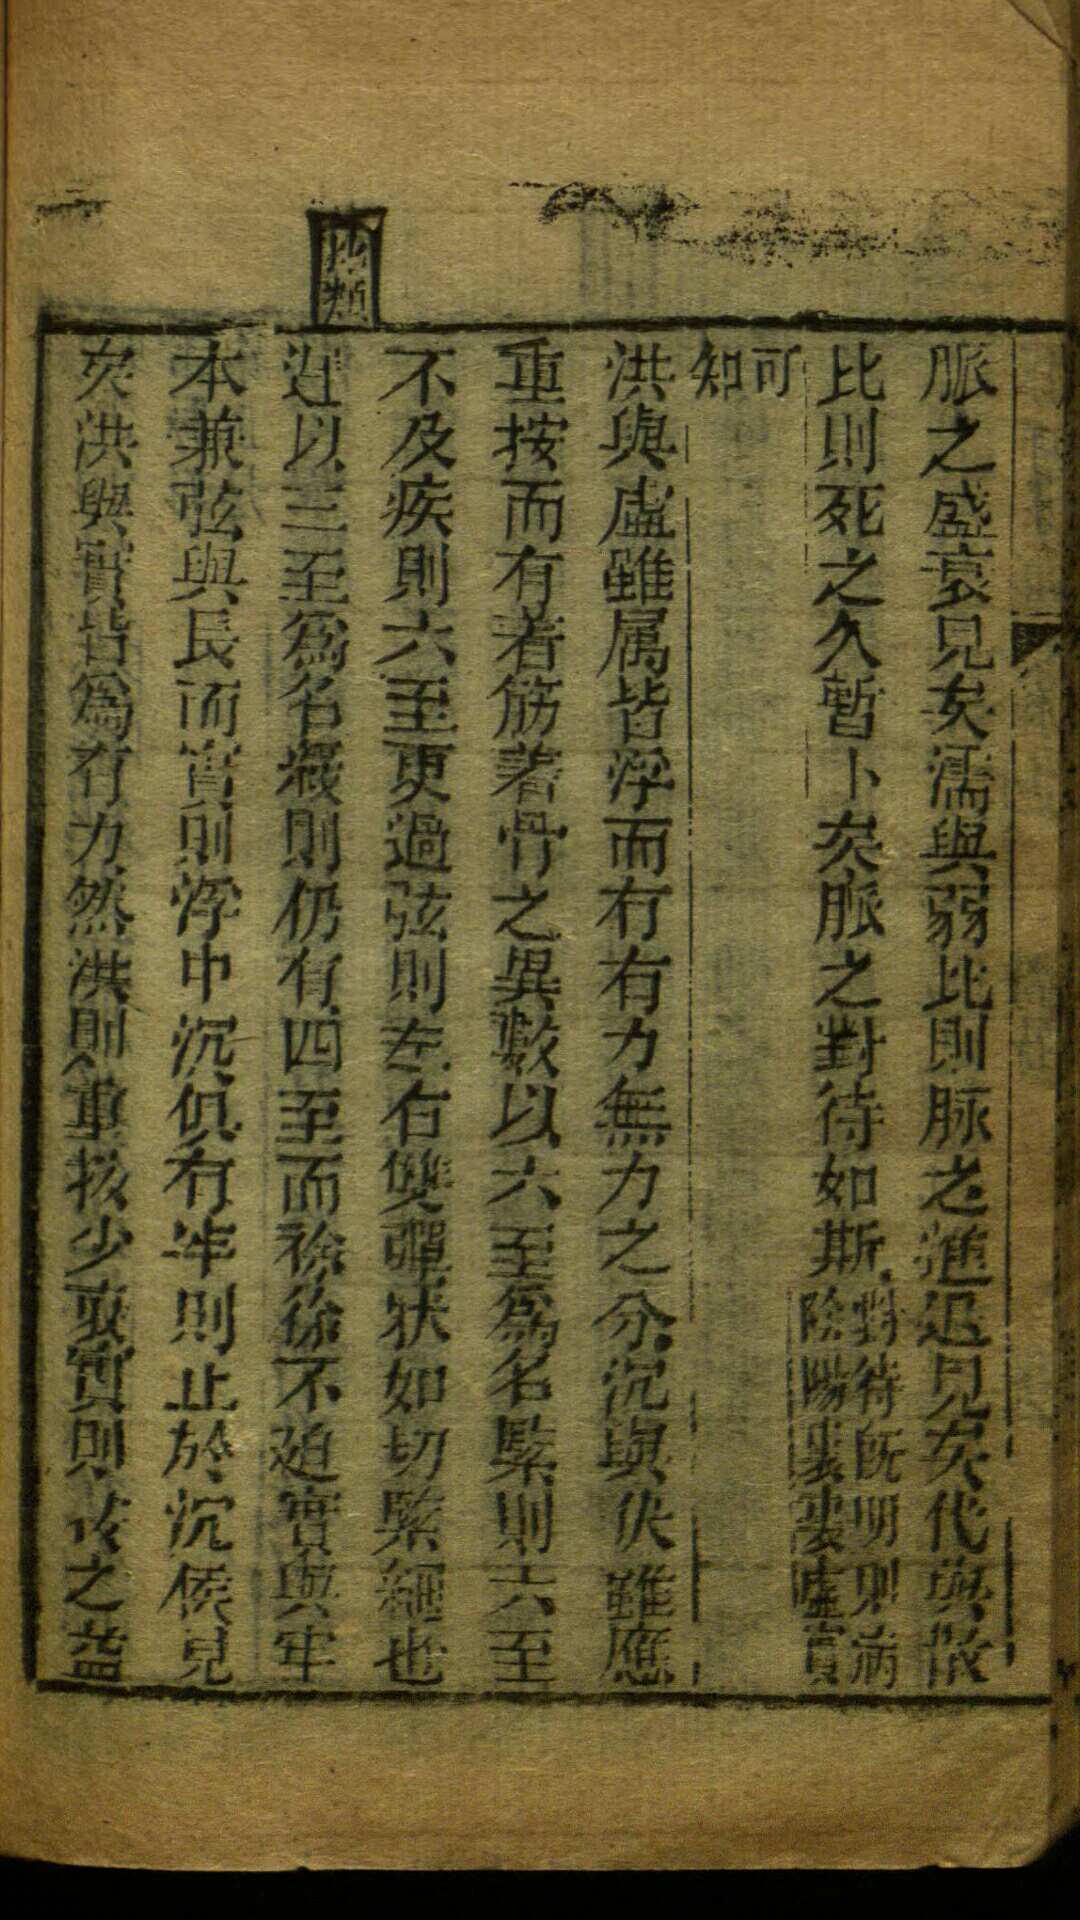 脈之盛衰見矣濡與弱比則脉之進退見矣代與散
比則死之久暫卜矣脈之對待如斯
對待既明則病
陰陽表裏虛實
可
知
洪與虛雖属皆浮而有有力無力之分沉與伏雖應
重按而有着筋著骨之異數以六至爲名緊則六至
不及疾則六至更過弦則左右雙彈狀如切緊繩也
遲以三至爲名緩則仍有四至而徐徐不廹實與牢
比類
本兼弦與長而實則浮中沉俱有牢則止於沉候見
矣洪與實皆爲有力然洪則重按少衰實則按之益